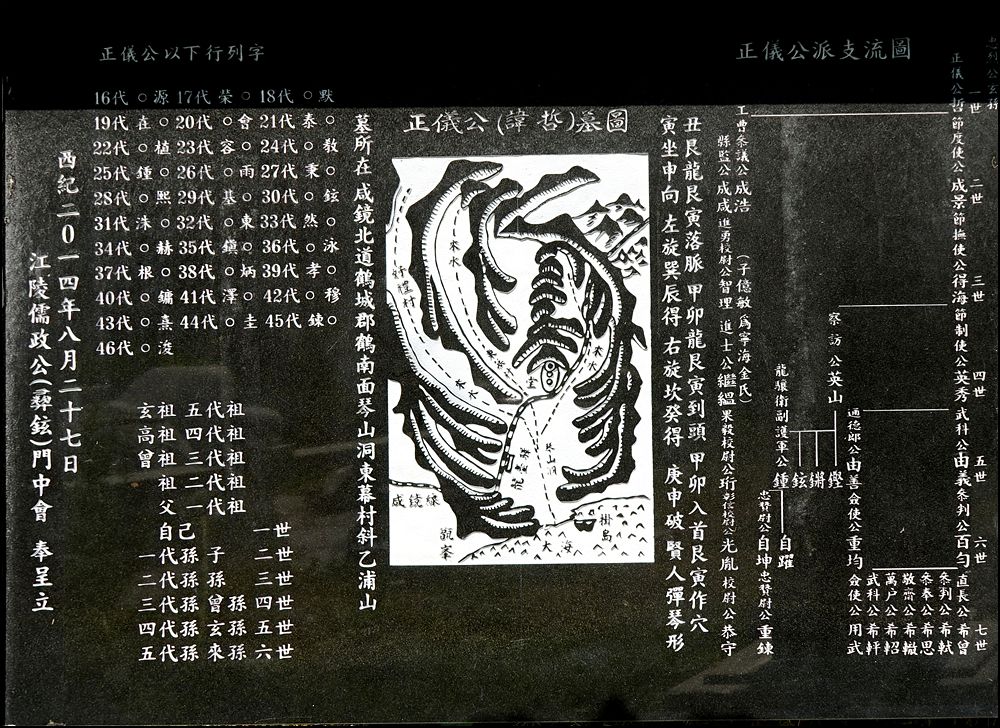 正儀公派支流圖
正儀公哲
一世
節度使公成景
二世
節撫使公得海
三世
節制使公英秀
四世
武科公由義
五世
參判公百勻
六世
直長公希曾
七世
參判公希軾
參奉公希思
敬齋公希轍
萬户公希軺
武科公希軒
僉使公用武
通德郎公由善
僉使公重均
察訪公英山
鏗
鏘
鉉
鍾
龍驤衛副護軍公
自躍
忠贊尉公自坤
忠贊尉公重鍊
工曹參議公成浩
(子億敏爲寧海金氏)
縣監公成咸
進勇校尉公智理
進士公繼縕
果毅校尉公珩
彰信校尉公光胤
校尉公恭守
正儀公(諱哲)墓圖
丑艮龍艮寅落脈 甲卯龍艮寅到頭 甲卯入首艮寅作穴
寅坐申向 左旋巽辰得 右旋坎癸得 庚申破 賢人彈琴形
來水
來水
來水
堂
琴山洞
咸鏡線
大海
卦島
墓所在 咸鏡北道鶴城郡鶴南面琴山洞東幕村斜乙浦山
正儀公以下行列字
16代 ○源 17代 榮○ 18代 ○默
19代 在○ 20代 ○會 21代 泰○
22代 ○植 23代 容○ 24代 ○教
25代 鍾○ 26代 ○雨 27代 秉○
28代 ○熙 29代 基○ 30代 ○鉉
31代 洙○ 32代 ○東 33代 然○
34代 ○赫 35代 鎭○ 36代 ○泳
37代 根○ 38代 ○炳 39代 孝○
40代 ○鏞 41代 澤○ 42代 ○穆
43代 ○熹 44代 ○圭 45代 鍊○
46代 ○浚
玄祖 五代祖
高祖 四代祖
曾祖 三代祖
祖 二代祖
父 一代祖
自己 一世
一代孫 子 二世
二代孫 孫 三世
三代孫 曾孫 四世
四代孫 玄孫 五世
五代孫 來孫 六世
西紀二0一四年八月二十七日
江陵儒政公(彛鉉)門中會 奉呈立